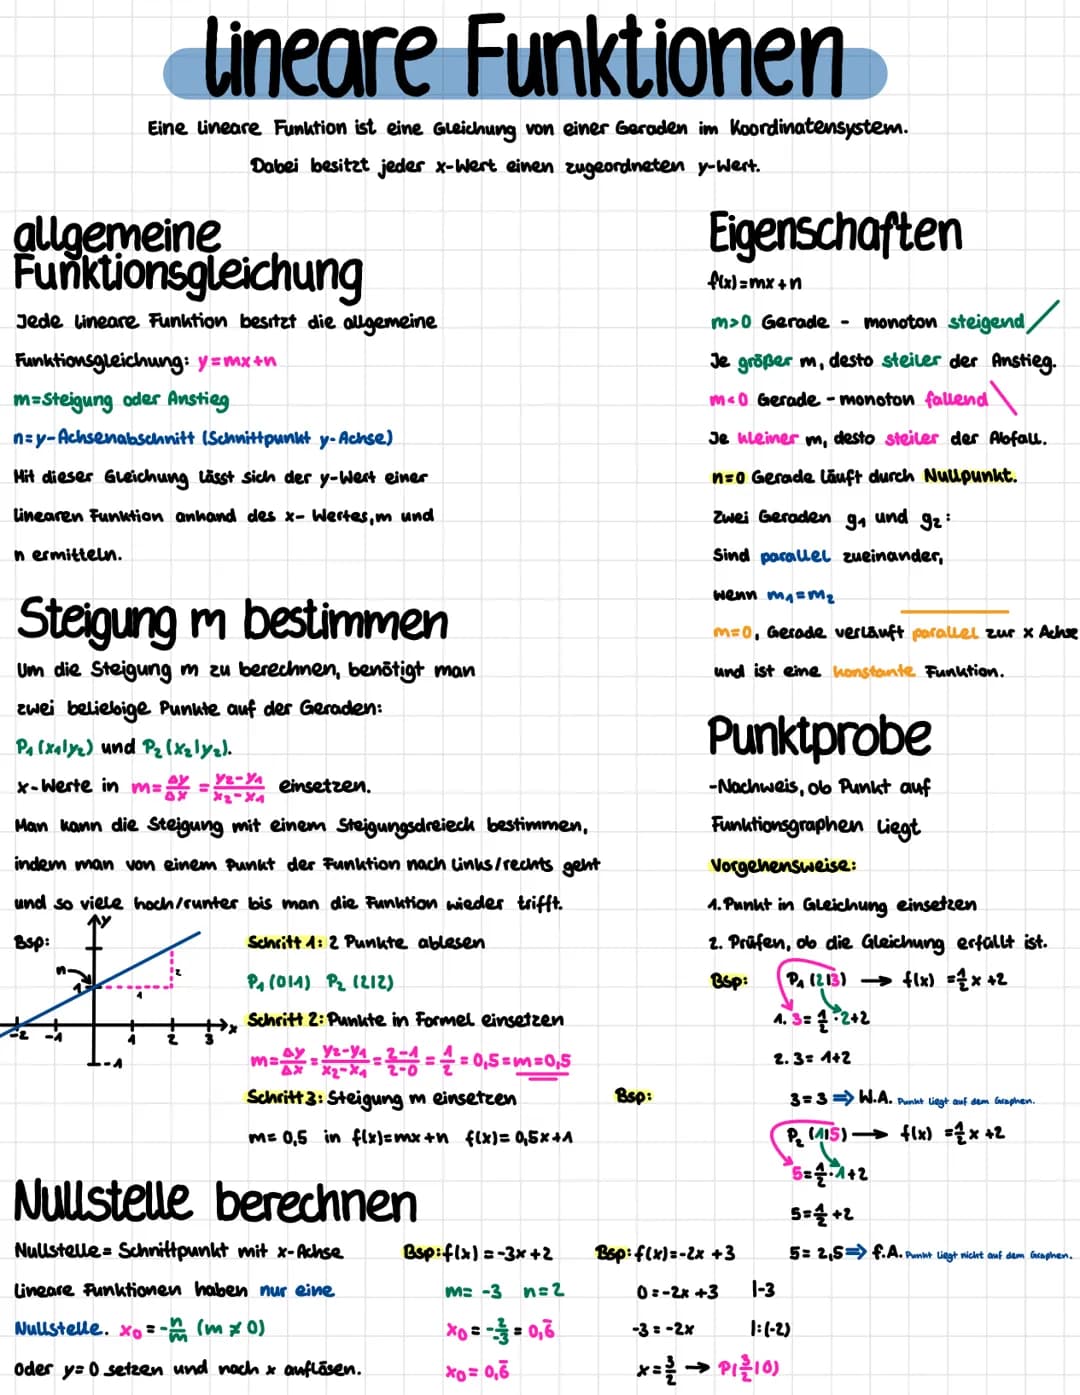 Lineare Funktionen
Eine lineare Funktion ist eine Gleichung von einer Geraden im Koordinatensystem.
Dabei besitzt jeder x-Wert einen zugeordneten y-Wert.
allgemeine
Funktionsgleichung
Jede lineare Funktion besitzt die allgemeine
Funktionsgleichung: y=mx+n
m=Steigung oder Anstieg
n=y-Achsenabschnitt (Schnittpunkt y-Achse)
Mit dieser Gleichung lässt sich der y-Wert einer
linearen Funktion anhand des x-Wertes, m und
n ermitteln.
Steigung m bestimmen
Um die Steigung m zu berechnen, benötigt man
zwei beliebige Punkte auf der Geraden:
P₁ (x₁|y₂) und P₂ (x₂|y₂).
x-Werte in m= Δy/Δx = y₂-y₁/x₂-x₁ einsetzen.
Man kann die Steigung mit einem Steigungsdreieck bestimmen,
indem man von einem Punkt der Funktion nach links/rechts geht
und so viele hoch/runter bis man die Funktion wieder trifft.
Bsp:
y
n
1
1
2
-2 -1 1 2 3 x
-1
Schritt 1: 2 Punkte ablesen
P₁ (0|1) P₂ (2|2)
Schritt 2: Punkte in Formel einsetzen
m= Δy/Δx = y₂-y₁/x₂-x₁ = 2-1/2-0 = 1/2 = 0,5 = m=0,5
Schritt 3: Steigung m einsetzen
m= 0,5 in f(x)=mx+n f(x)= 0,5x+1
Nullstelle berechnen
Nullstelle= Schnittpunkt mit x-Achse
Lineare Funktionen haben nur eine
Nullstelle. x₀ = -n/m (m ≠ 0)
oder y=0 setzen und nach x auflösen.
Bsp: f(x) = -3x+2
m= -3 n=2
x₀ = -2/-3 = 0,6̅
x₀ = 0,6̅
Bsp:
Bsp: f(x)=-2x +3
0=-2x +3 |-3
-3 = -2x |:(-2)
x= 3/2 → P(3/2|0)
Eigenschaften
f(x)=mx+n
m>0 Gerade - monoton steigend
Je größer m, desto steiler der Anstieg.
m<0 Gerade - monoton fallend
Je kleiner m, desto steiler der Abfall.
n=0 Gerade läuft durch Nullpunkt.
Zwei Geraden g₁ und g₂:
Sind parallel zueinander,
wenn m₁=m₂
m=0, Gerade verläuft parallel zur x Achse
und ist eine konstante Funktion.
Punktprobe
-Nachweis, ob Punkt auf
Funktionsgraphen liegt
Vorgehensweise:
1. Punkt in Gleichung einsetzen
2. Prüfen, ob die Gleichung erfüllt ist.
Bsp: P₁ (2|3) → f(x) = 1/2 x +2
1. 3= 1/2 · 2+2
2. 3= 1+2
3=3 ⇒ W.A. Punkt liegt auf dem Graphen.
P₂ (1|5) → f(x) = 1/2 x +2
5= 1/2 · 1+2
5= 1/2 +2
5= 2,5 ⇒ f.A. Punkt liegt nicht auf dem Graphen.